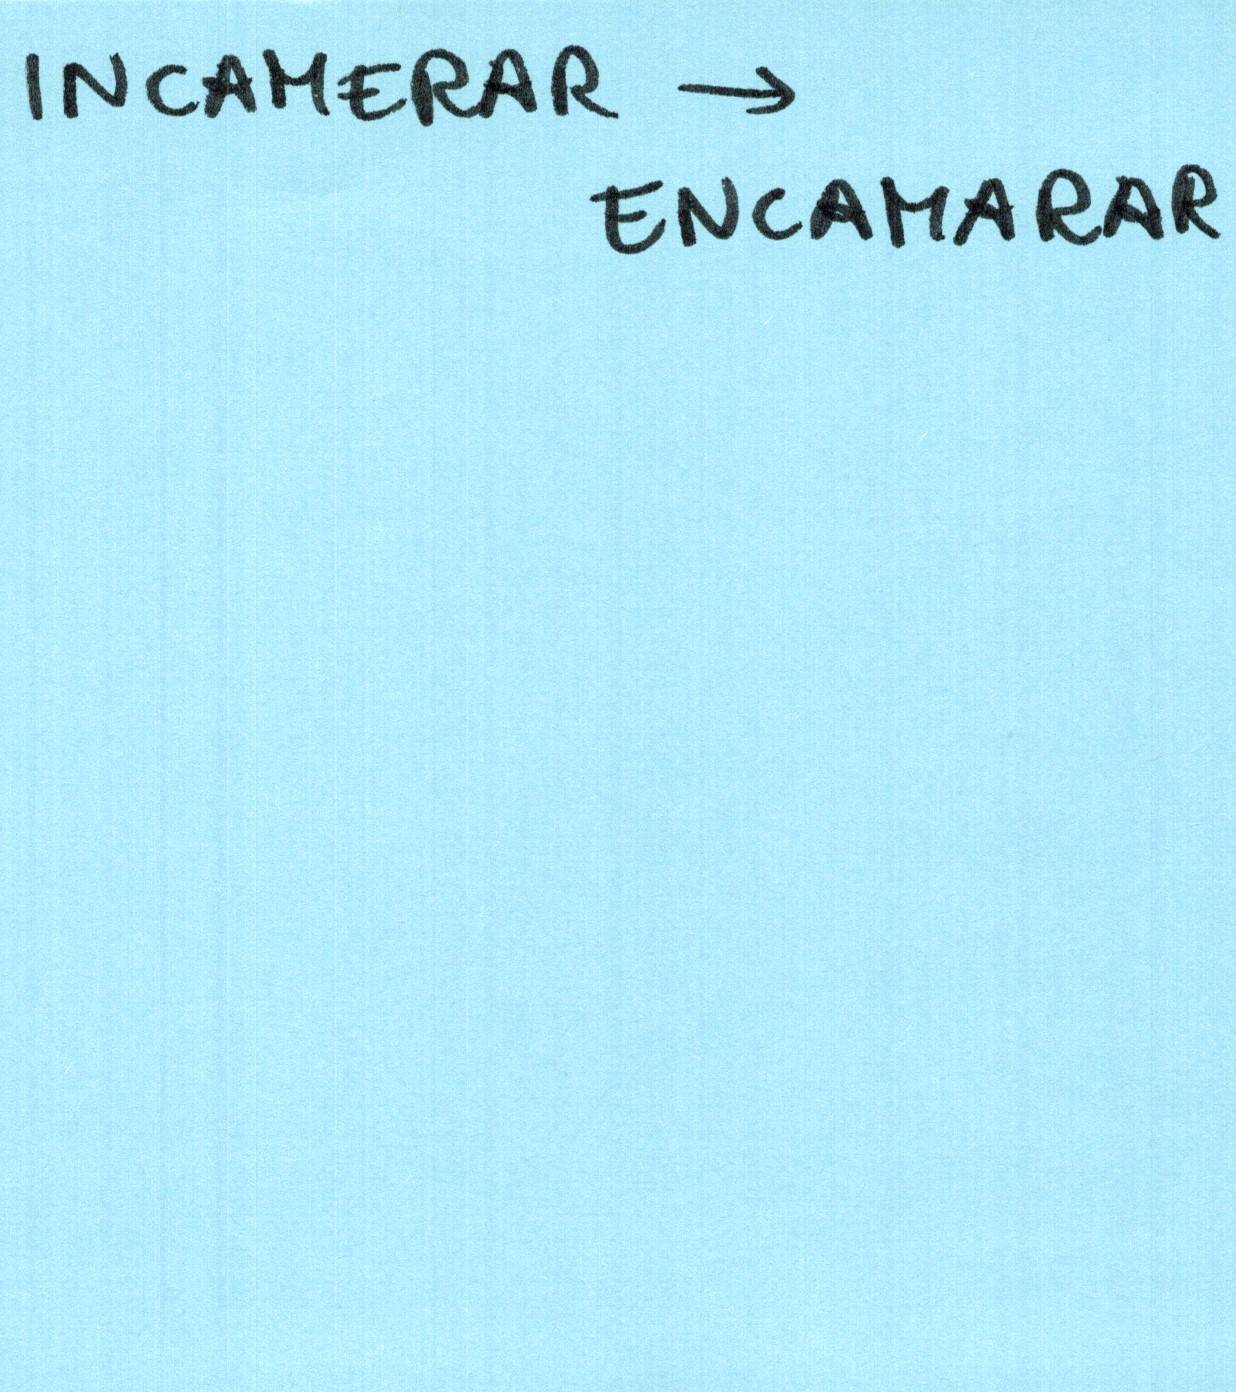 INCAMERAR →
ENCAMARAR